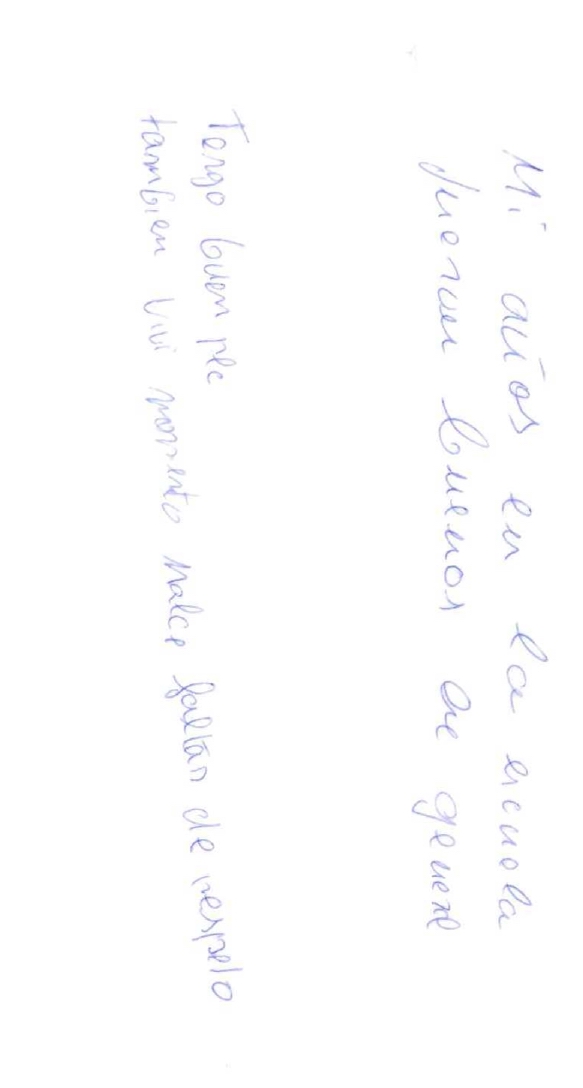 Mi años en la escuela
fueron buenos en general
Tengo buen rec
tambien vivi momento malce faltan de respeto